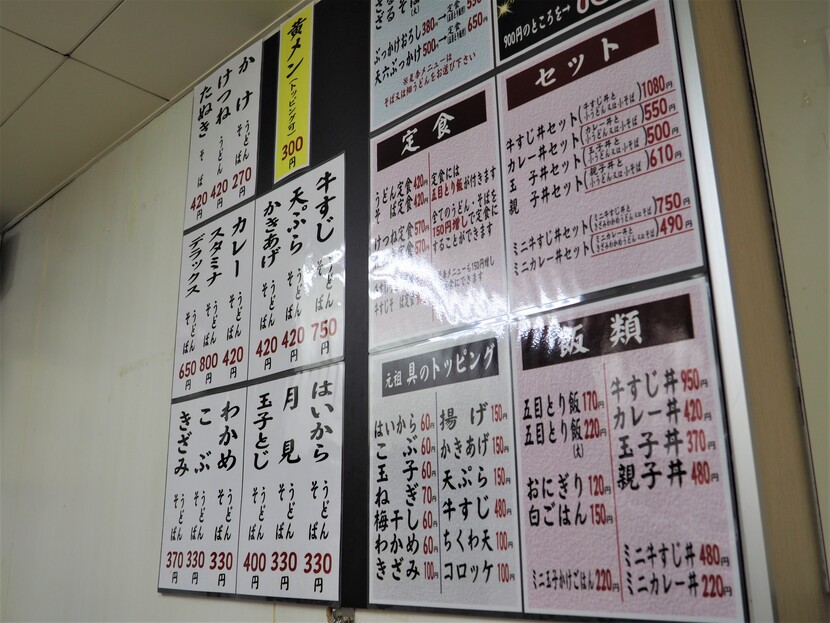 かけ うどん 270
けつね うどん 420円
たぬき そば 420円
黄メン(トッピング可) 300円
牛すじ うどん そば 750円
天ぷら うどん そば 420円
かきあげ うどん そば 420円
カレー うどん そば 420円
スタミナ うどん そば 800円
デラックス うどん そば 650円
はいから うどん そば 330円
月見 うどん そば 330円
玉子とじ うどん そば 400円
わかめ うどん そば 330円
こぶ うどん そば 330円
きざみ うどん そば 370円
ざるそば(大)
ぶっかけおろし 380円→定食 550円
天六ぶっかけ 500円→定食 650円
そば又は細うどんをお選び下さい
900円のところを→
定食
うどん定食 420円
そば定食 420円
けつね定食 570円
定食 570円
定食には
五目とり飯が付きます
全てのうどん・そばを
150円増しで定食に
することができます
セット
牛すじ丼セット(牛すじ丼と小うどん又は小そば) 1080円
カレー丼セット(カレー丼と小うどん又は小そば) 550円
玉子丼セット(玉子丼と小うどん又は小そば) 500円
親子丼セット(親子丼と小うどん又は小そば) 610円
ミニ牛すじ丼セット(ミニ牛すじ丼ときざみわかめうどん又はそば) 750円
ミニカレー丼セット(ミニカレー丼ときざみわかめうどん又はそば) 490円
元祖 具のトッピング
はいから 60円
こぶ 60円
玉子 60円
ねぎ 70円
梅干し 60円
わかめ 60円
きざみ 100円
揚げ 150円
かきあげ 150円
天ぷら 150円
牛すじ 480円
ちくわ天 100円
コロッケ 100円
飯類
五目とり飯 170円
五目とり飯(大) 220円
おにぎり 120円
白ごはん 150円
ミニ玉子かけごはん 220円
牛すじ丼 950円
カレー丼 420円
玉子丼 370円
親子丼 480円
ミニ牛すじ丼 480円
ミニカレー丼 220円